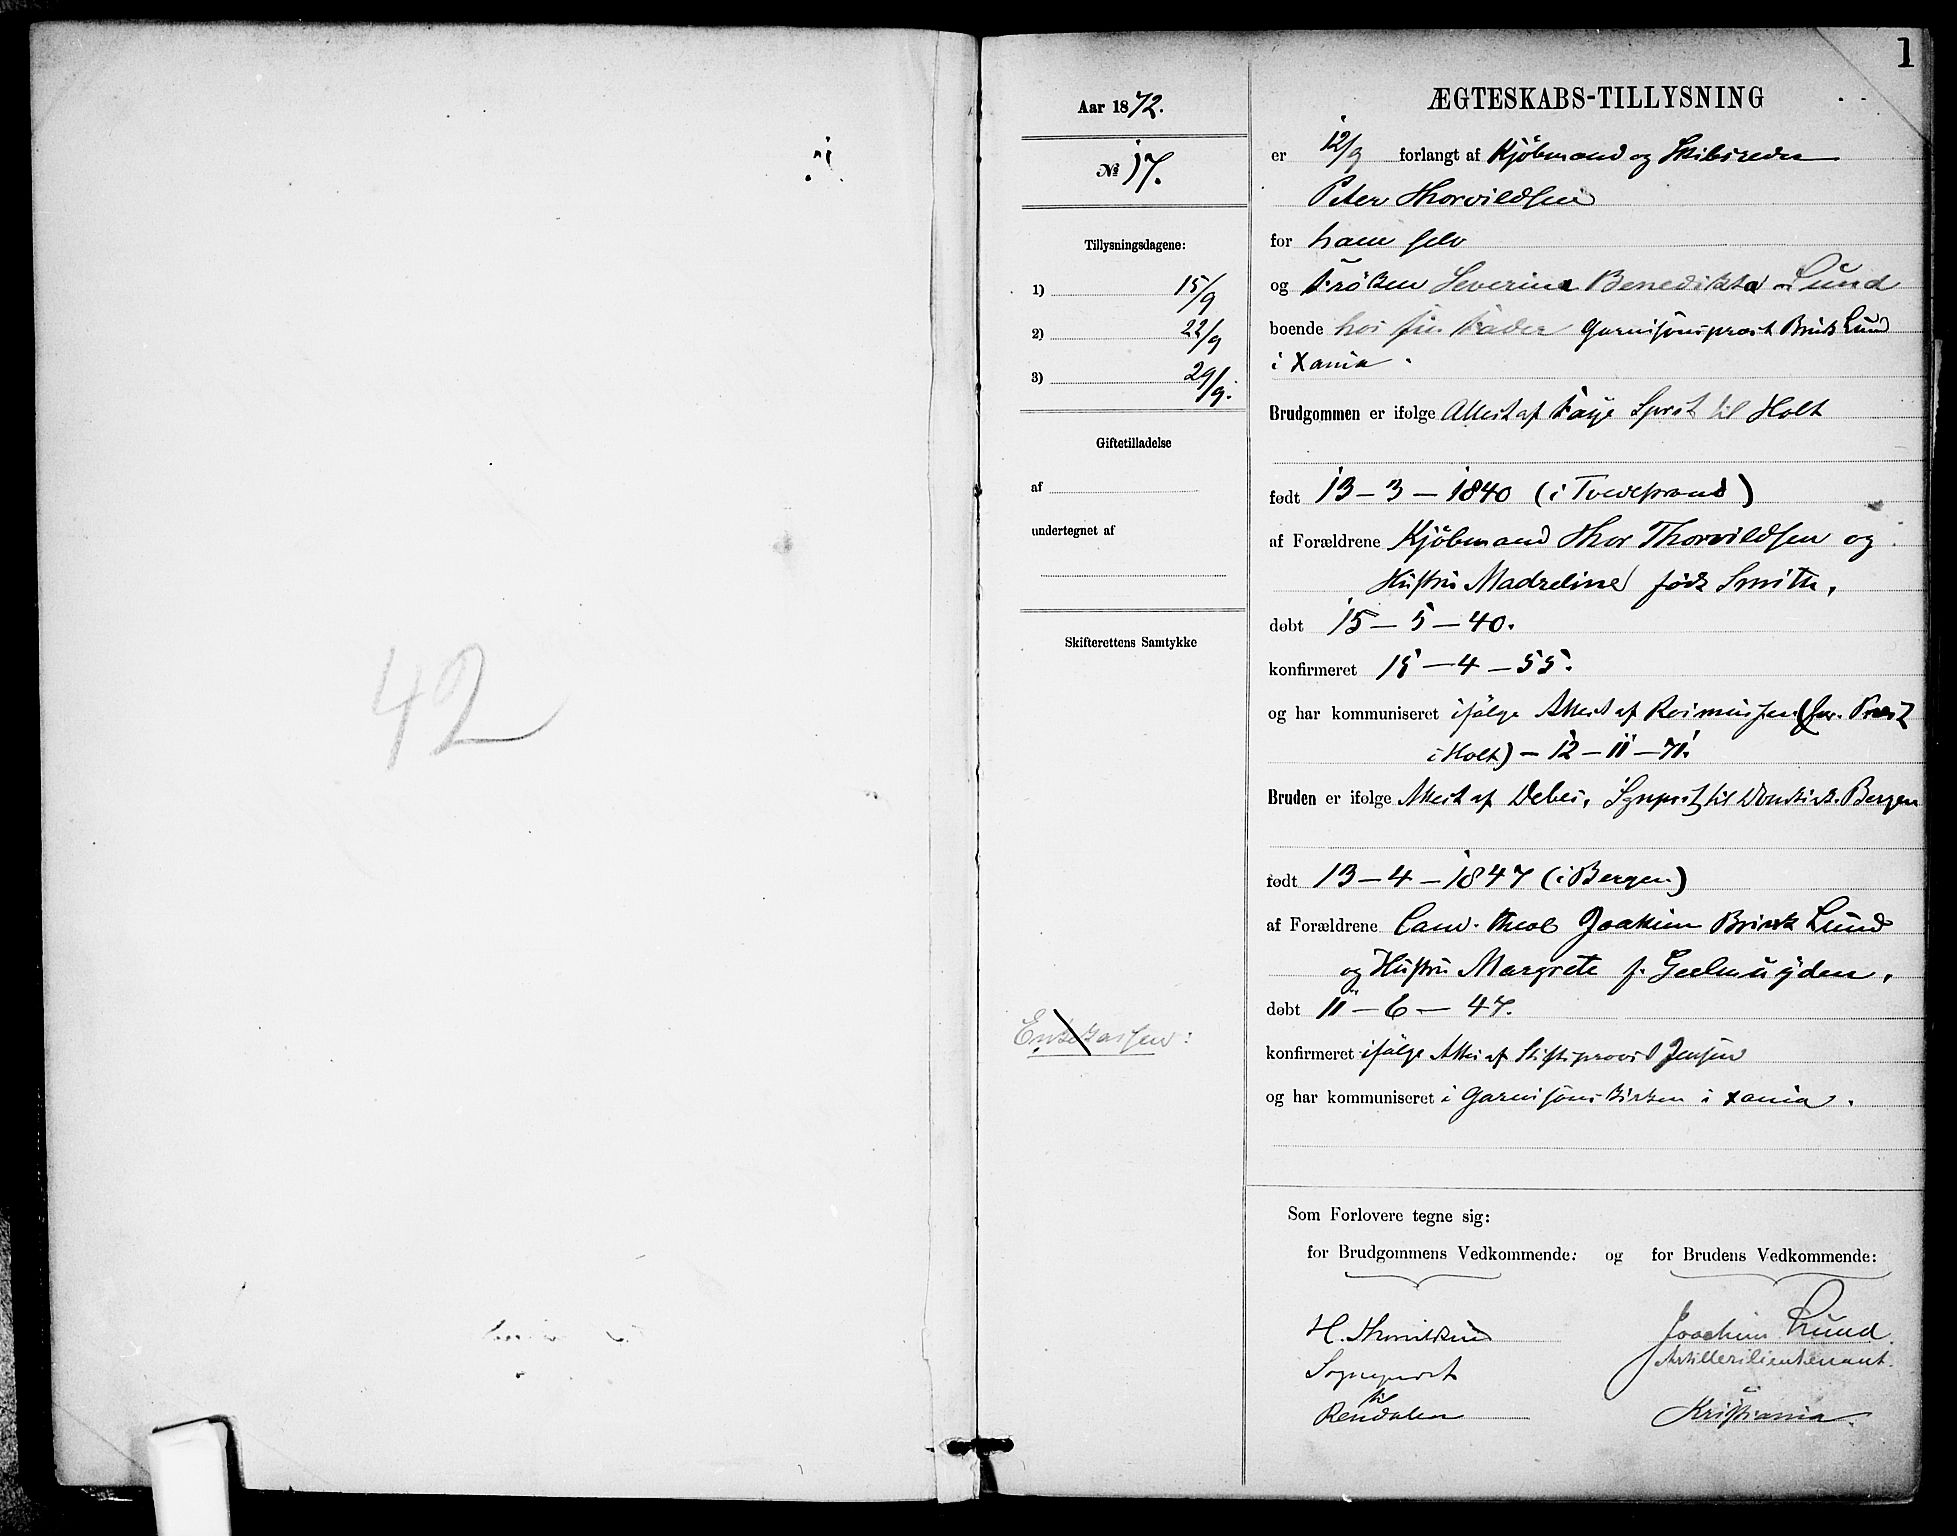 42
1
Aar 1872.
№ 17.
Tillysningsdagene:
1) 15/9
2) 22/9
3) 29/9.
Giftetilladelse
af
undertegnet af
Skifterettens Samtykke
Enkekassen:
ÆGTESKABS-TILLYSNING
er 12/9 forlangt af Kjöbmand og Skibsreder
Peter Thorvildsen
for ham selv
og Fröken Severina Benedikta Lund
boende hos sin Fader Garnisonspræst Brink Lund
i Xania.
Brudgommen er ifølge Attest af Faye Sprst til Holt
født 13-3-1840 (i Tvedestrand)
af Forældrene Kjöbmand Thor Thorvildsen og
Hustru Madseline född Smith,
døbt 15-5-40.
konfirmeret 15-4-55.
og har kommuniseret ifölge Attest af Rasmussen (fw. Præst
i Holt) - 12-11-71.
Bruden er ifølge Attest af Debes, Sgnprst til Domkirk. Bergen
født 13-4-1847 (i Bergen)
af Forældrene Cand. theol Joakim Brink Lund
og Hustru Margrete f. Geelmuÿden,
døbt 11-6-47.
konfirmeret ifölge Attes af Stiftsprovst Jensen
og har kommuniseret i Garnisonskirken i Xania.
Som Forlovere tegne sig:
for Brudgommens Vedkommende: og for Brudens Vedkommende:
H. Thorvildsen Joachim Lund.
Sogneprest Artillerilieutenant.
til
Rendalen Kristiania.